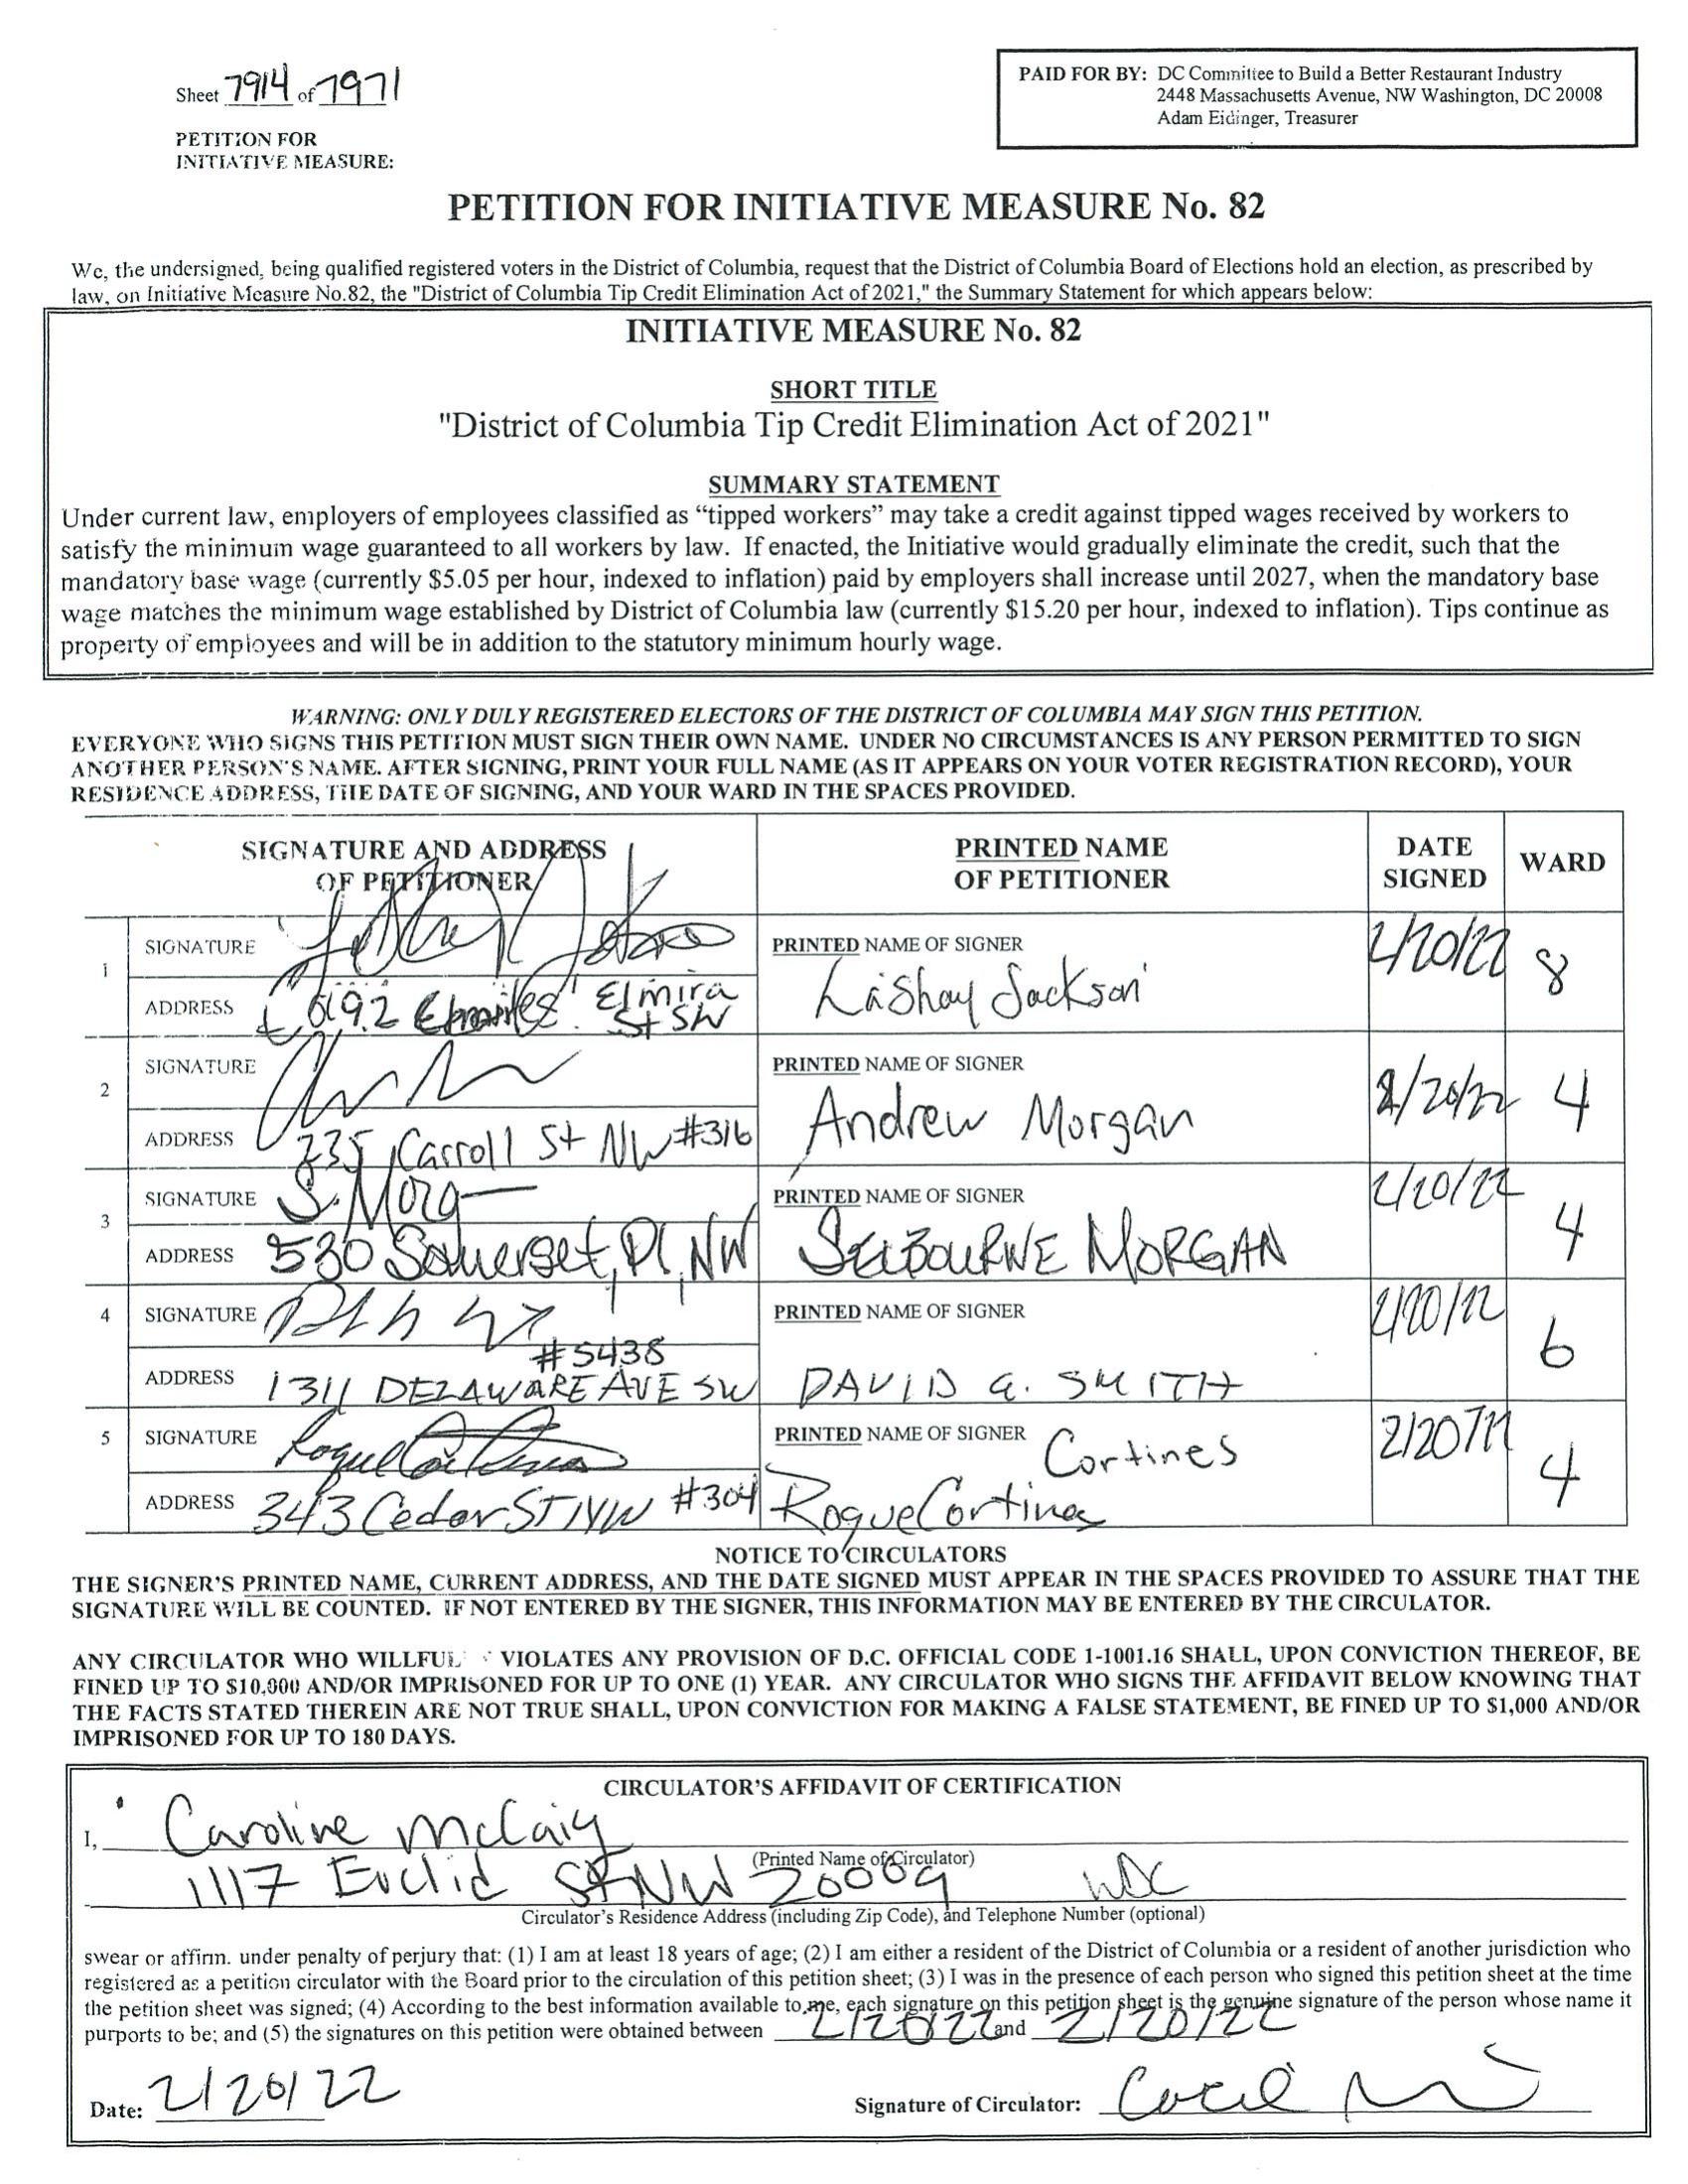 Sheet 7914 of 7971
PAID FOR BY: DC Committee to Build a Better Restaurant Industry
2448 Massachusetts Avenue, NW Washington, DC 20008
Adam Eidinger, Treasurer
PETITION FOR
INITIATIVE MEASURE:
PETITION FOR INITIATIVE MEASURE No. 82
We, the undersigned, being qualified registered voters in the District of Columbia, request that the District of Columbia Board of Elections hold an election, as prescribed by
law, on Initiative Measure No.82, the "District of Columbia Tip Credit Elimination Act of 2021," the Summary Statement for which appears below:
INITIATIVE MEASURE No. 82
SHORT TITLE
"District of Columbia Tip Credit Elimination Act of 2021"
SUMMARY STATEMENT
Under current law, employers of employees classified as “tipped workers” may take a credit against tipped wages received by workers to
satisfy the minimum wage guaranteed to all workers by law. If enacted, the Initiative would gradually eliminate the credit, such that the
mandatory base wage (currently $5.05 per hour, indexed to inflation) paid by employers shall increase until 2027, when the mandatory base
wage matches the minimum wage established by District of Columbia law (currently $15.20 per hour, indexed to inflation). Tips continue as
property of employees and will be in addition to the statutory minimum hourly wage.
WARNING: ONLY DULY REGISTERED ELECTORS OF THE DISTRICT OF COLUMBIA MAY SIGN THIS PETITION.
EVERYONE WHO SIGNS THIS PETITION MUST SIGN THEIR OWN NAME. UNDER NO CIRCUMSTANCES IS ANY PERSON PERMITTED TO SIGN
ANOTHER PERSON'S NAME. AFTER SIGNING, PRINT YOUR FULL NAME (AS IT APPEARS ON YOUR VOTER REGISTRATION RECORD), YOUR
RESIDENCE ADDRESS, THE DATE OF SIGNING, AND YOUR WARD IN THE SPACES PROVIDED.
SIGNATURE AND ADDRESS
OF PETITIONER
PRINTED NAME
OF PETITIONER
DATE
SIGNED
WARD
1
SIGNATURE
PRINTED NAME OF SIGNER
2/20/22
8
ADDRESS Elmira
St SW
LaShay Jackson
2
SIGNATURE
PRINTED NAME OF SIGNER
2/20/22
4
ADDRESS 235 Carroll St NW #316
Andrew Morgan
3
SIGNATURE S. Morg
PRINTED NAME OF SIGNER
2/20/22
4
ADDRESS 530 Somerset, Pl, NW
SELBOURNE MORGAN
4
SIGNATURE
PRINTED NAME OF SIGNER
2/20/22
6
#5438
ADDRESS 1311 DELAWARE AVE SW
DAVID G. SMITH
5
SIGNATURE
PRINTED NAME OF SIGNER Cortines
4
ADDRESS 343 Cedar ST NW #304
Roque Cortines
NOTICE TO CIRCULATORS
THE SIGNER'S PRINTED NAME, CURRENT ADDRESS, AND THE DATE SIGNED MUST APPEAR IN THE SPACES PROVIDED TO ASSURE THAT THE
SIGNATURE WILL BE COUNTED. IF NOT ENTERED BY THE SIGNER, THIS INFORMATION MAY BE ENTERED BY THE CIRCULATOR.
ANY CIRCULATOR WHO WILLFUL VIOLATES ANY PROVISION OF D.C. OFFICIAL CODE 1-1001.16 SHALL, UPON CONVICTION THEREOF, BE
FINED UP TO $10,000 AND/OR IMPRISONED FOR UP TO ONE (1) YEAR. ANY CIRCULATOR WHO SIGNS THE AFFIDAVIT BELOW KNOWING THAT
THE FACTS STATED THEREIN ARE NOT TRUE SHALL, UPON CONVICTION FOR MAKING A FALSE STATEMENT, BE FINED UP TO $1,000 AND/OR
IMPRISONED FOR UP TO 180 DAYS.
CIRCULATOR'S AFFIDAVIT OF CERTIFICATION
I, Caroline McCaig
(Printed Name of Circulator)
1117 Euclid St NW 20009 WDC
Circulator's Residence Address (including Zip Code), and Telephone Number (optional)
swear or affirm. under penalty of perjury that: (1) I am at least 18 years of age; (2) I am either a resident of the District of Columbia or a resident of another jurisdiction who
registered as a petition circulator with the Board prior to the circulation of this petition sheet; (3) I was in the presence of each person who signed this petition sheet at the time
the petition sheet was signed; (4) According to the best information available to me, each signature on this petition sheet is the genuine signature of the person whose name it
purports to be; and (5) the signatures on this petition were obtained between 2/20/22 and 2/20/22
Date: 2/20/22
Signature of Circulator: